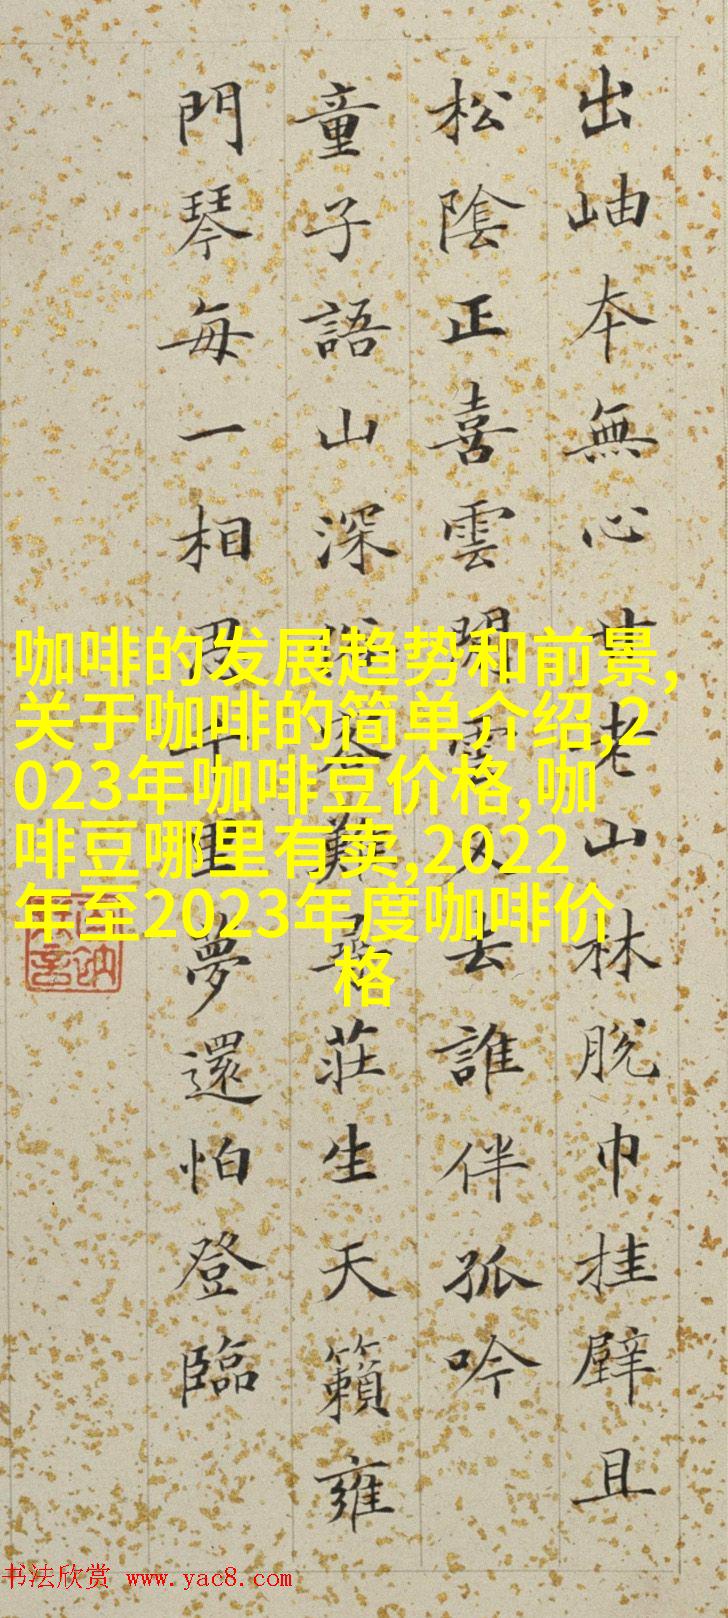 出岫本無心老山林脱巾挂壁且
松陰正喜雲閒雲又去誰伴孤吟
童子語山深難尋莊生天籟雍
門琴每一相思千里夢還怕登臨
咖啡的发展趋势和前景,
关于咖啡的简单介绍,2
023年咖啡豆价格,咖
啡豆哪里有卖,2022
年至2023年度咖啡价
格
书法欣赏 www.yac8.com